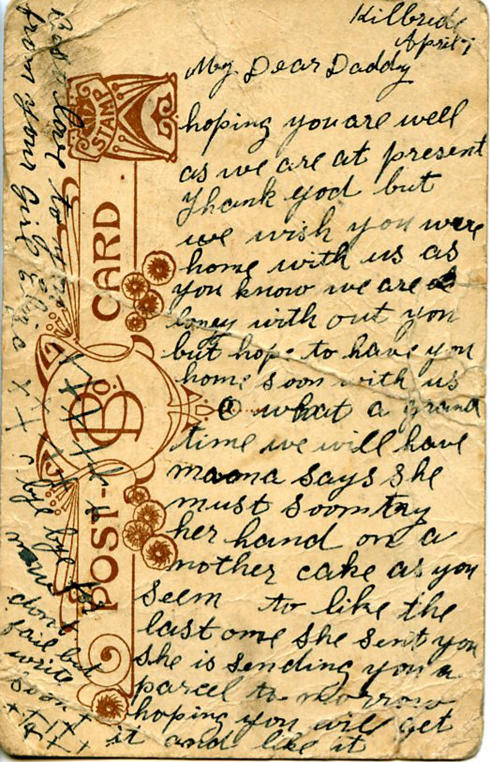 Kilbride
April 7
My Dear Daddy
hoping you are well
as we are at present
thank god but
we wish you were
home with us as
you know we are
loney with out you
but hope to have you
home soon with us
O what a grand
time we will have
mama says she
must soon try
her hand on a
nother cake as you
seem to like the
last one she sent you
she is sending you a
parcel to morrow
hoping you will get
it and like it
STAMP
POST-CARD
Best love to you
from your Girl
bye bye
dont
fail but
write
soon